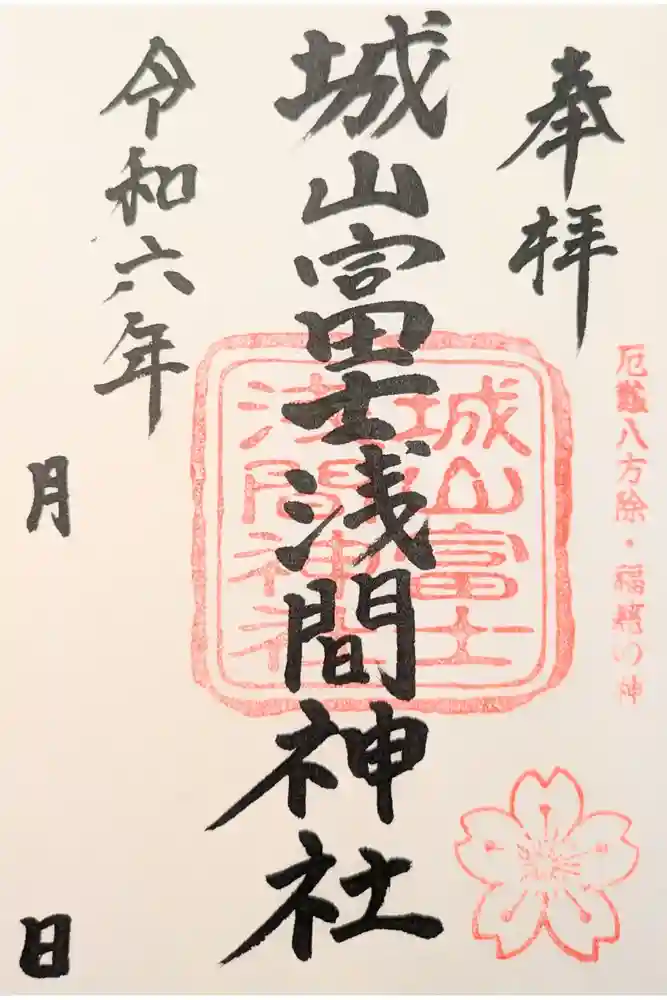 奉拝
厄難八方除・福龍の神
城山富士浅間神社
城山富士
浅間神社
令和六年
月
日